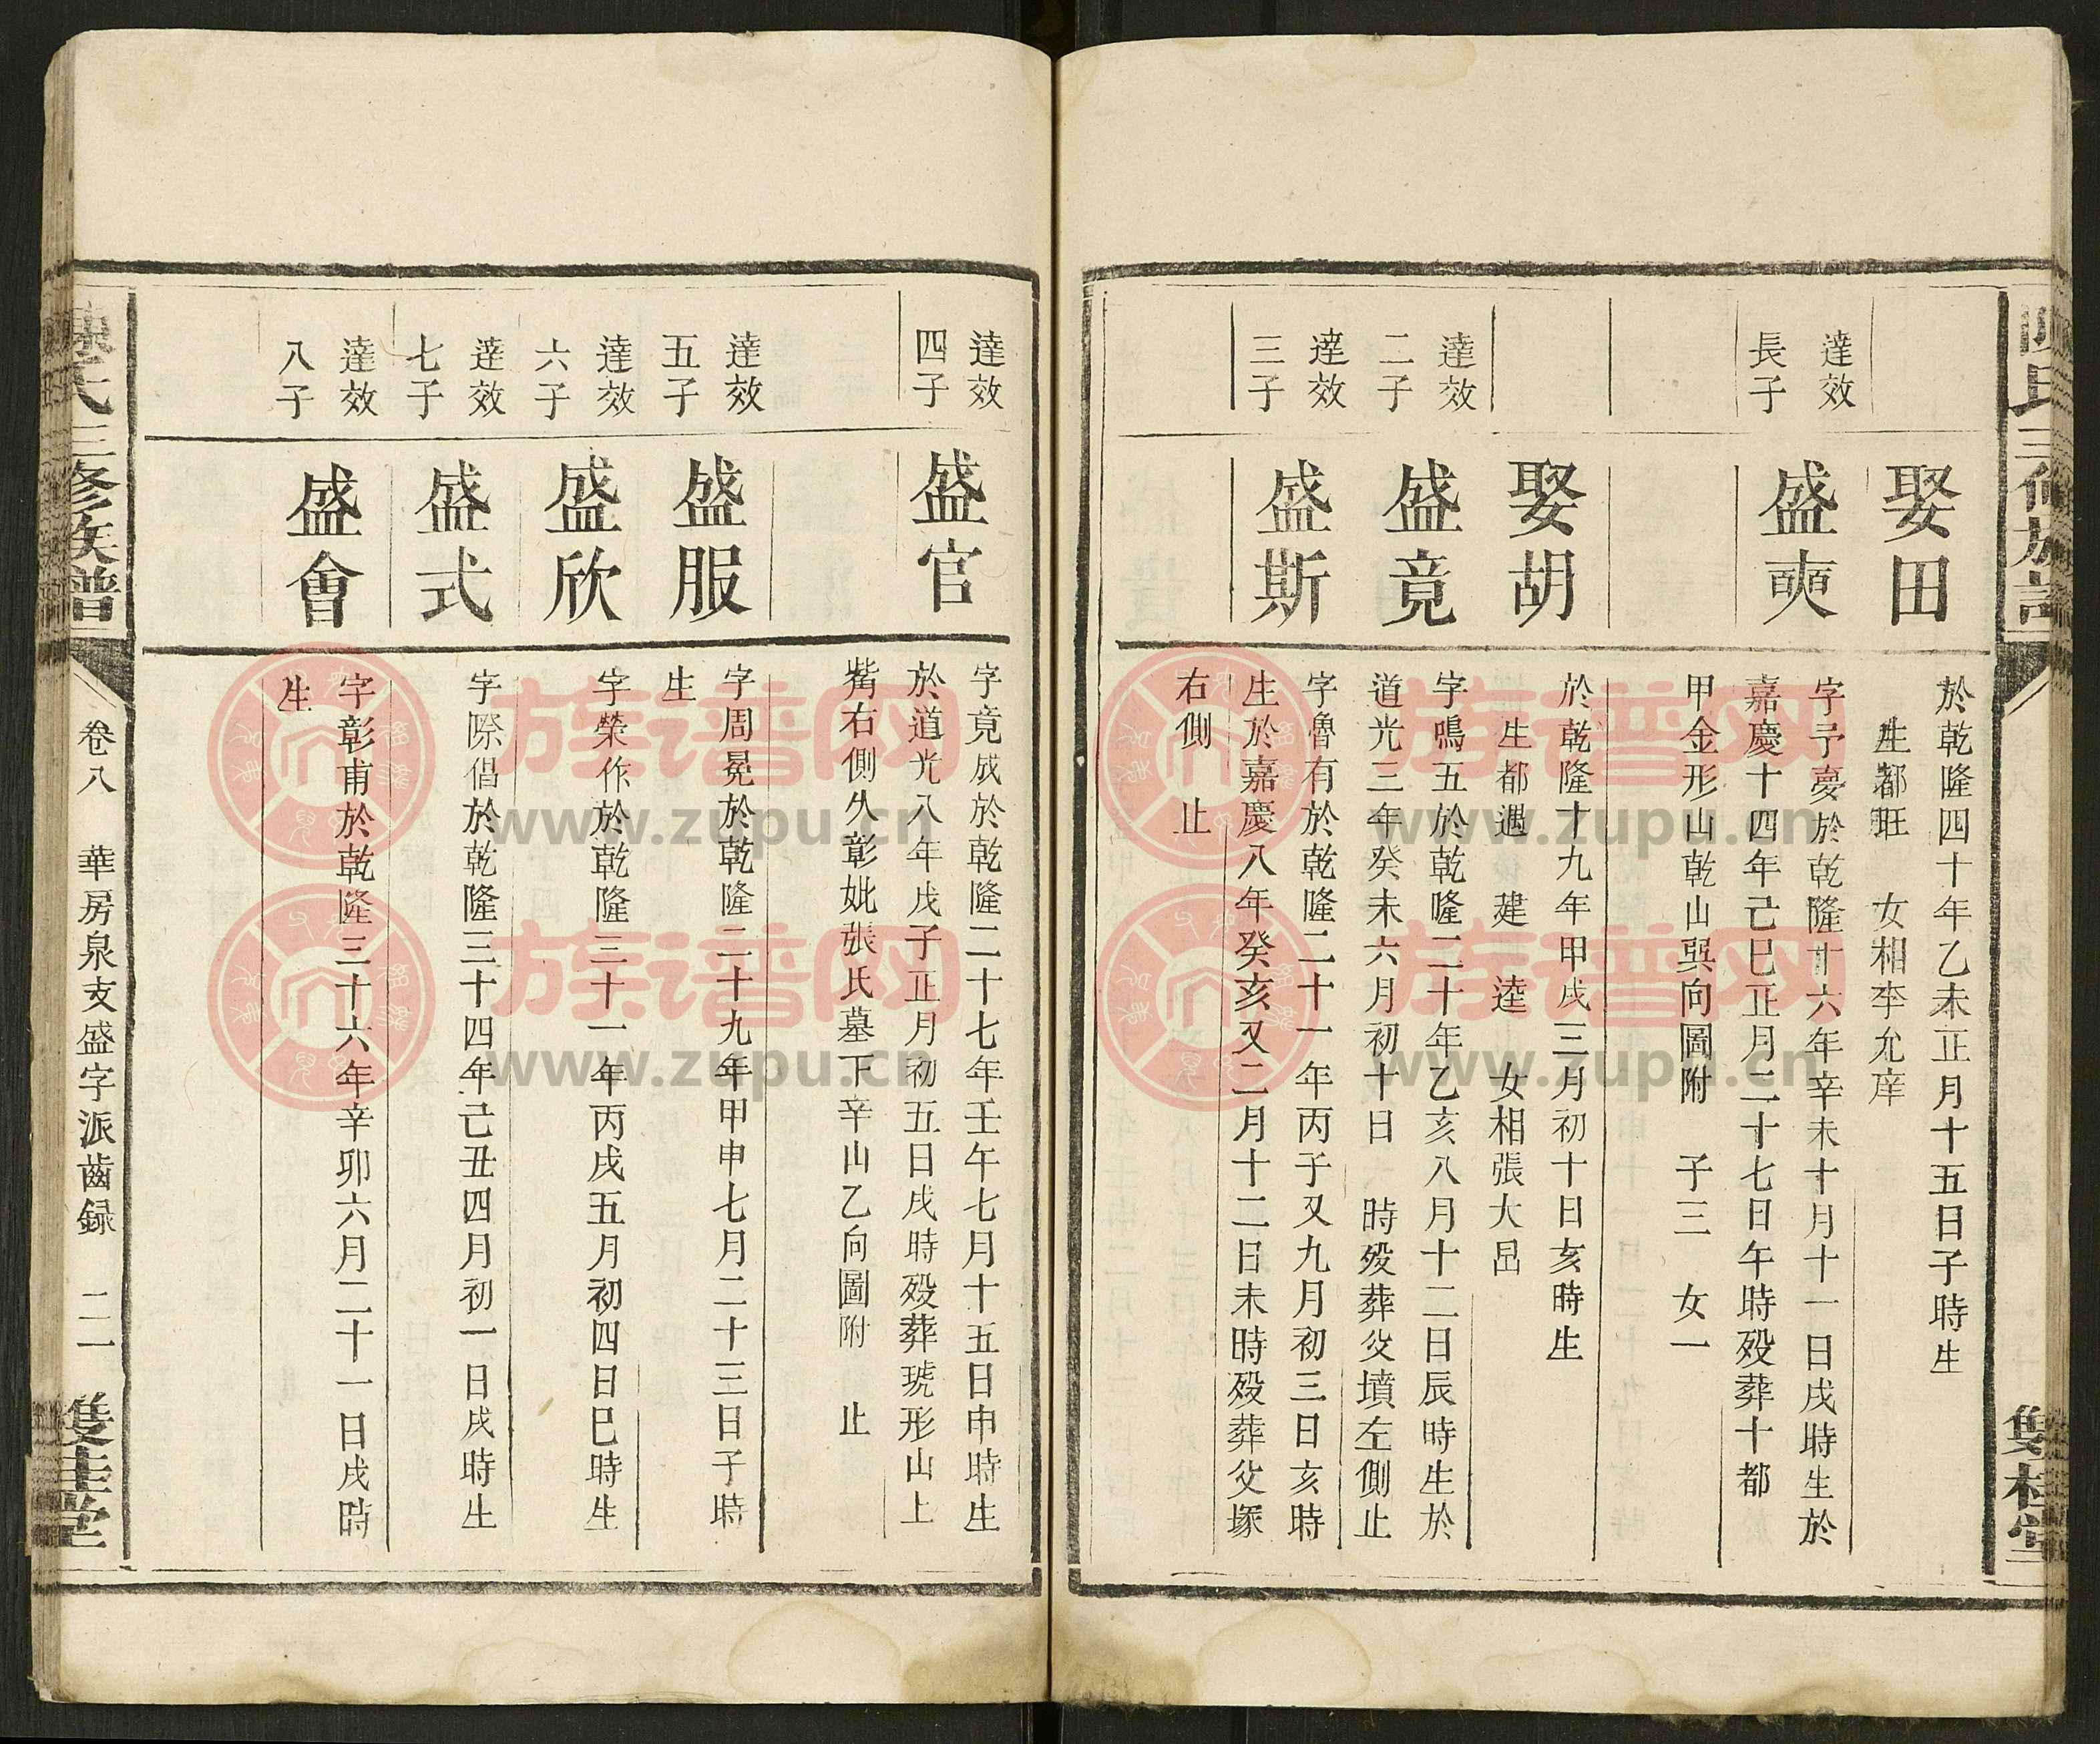 陳氏三修族譜
雙桂堂
娶田
於乾隆四十年乙未正月十五日子時生
生都旺 女相李允庠
達效
長子
盛奭
字予夢於乾隆十六年辛未十月十一日戌時生於
嘉慶十四年己巳正月二十七日午時殁葬十都
甲金形山乾山巽向圖附 子三 女一
娶胡
於乾隆十九年甲戌三月初十日亥時生
生都遇 建 逵 女相張大昌
達效
二子
盛竟
字鳴五於乾隆二十年乙亥八月十二日辰時生於
道光三年癸未六月初十日 時殁葬父墳左側止
達效
三子
盛斯
字魯有於乾隆二十一年丙子又九月初三日亥時
生於嘉慶八年癸亥又二月十二日未時殁葬父塚
右側 止
達效
四子
盛官
字竟成於乾隆二十七年壬午七月十五日申時生
於道光八年戊子正月初五日戌時殁葬琥形山上
觜右側久彰妣張氏墓下辛山乙向圖附 止
達效
五子
盛服
字周冕於乾隆二十九年甲申七月二十三日子時
生
達效
六子
盛欣
字榮作於乾隆三十一年丙戌五月初四日巳時生
達效
七子
盛式
字際倡於乾隆三十四年己丑四月初一日戌時生
達效
八子
盛會
字彰甫於乾隆三十六年辛卯六月二十一日戌時
生
陳氏三修族譜
卷八 華房泉支盛字派齒録 二一
雙桂堂
族谱网
www.zupu.cn
族谱网
www.zupu.cn
族谱网
www.zupu.cn
族谱网
www.zupu.cn